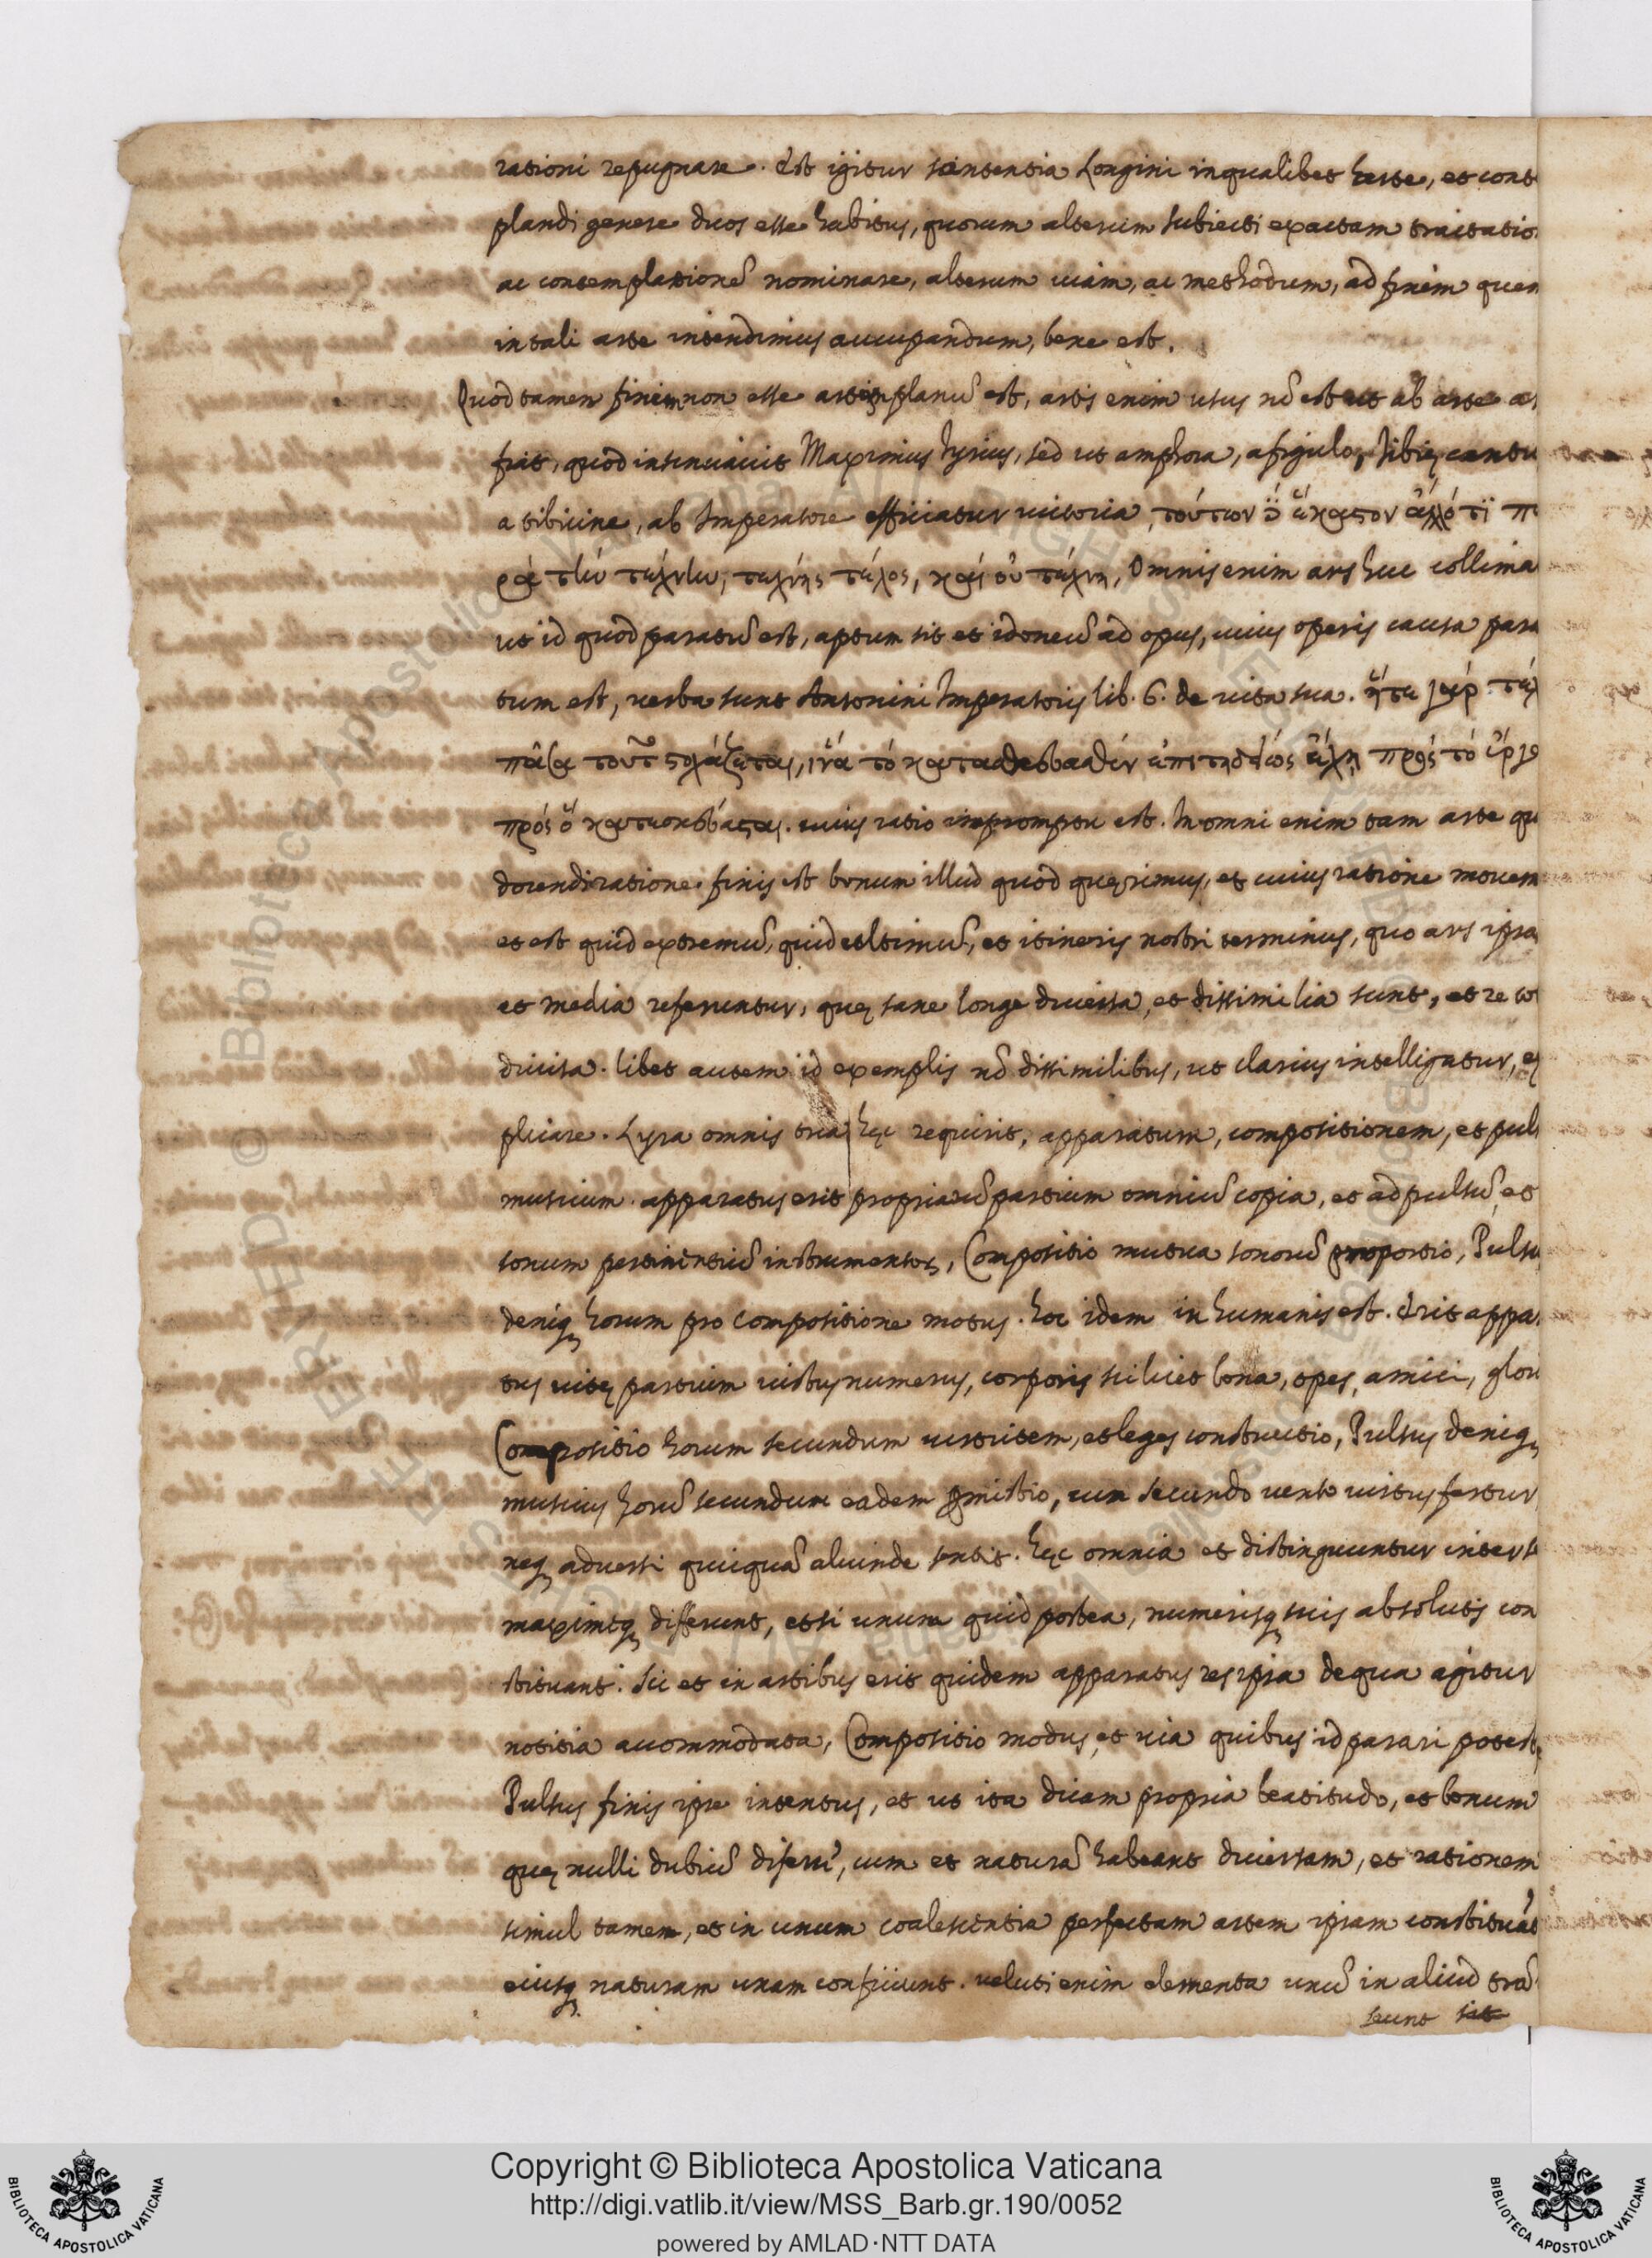 rationi repugnare. Est igitur sententia Longini in qualibet arte, et cont
plandi genere duos esse habitus, quorum alterum subiecti exactam tractatio
ac contemplationē nominare, alterum uiam, ac methodum, ad finem quem
in tali arte intendimus aucupandum, bene est.
Quod tamen finem non esse artis planū est, artis enim usus nō est ut ab arte ar
fiat, quod insinuauit Maximus Tyrius, sed ut amphora, a figulo, tibię cantu
a tibicine, ab Imperatore efficiatur uictoria, τούτων ἕκαστον ἄλλό τι πα
ρά τὴν τέχνην, τέχνης τέλος, καί οὐ τέχνη, Omnis enim ars huc collima
ut id quod paratū est, aptum sit et idoneū ad opus, cuius operis causa para
tum est, uerba sunt Antonini Imperatoris lib. 6. de uita sua. ἥτε γάρ τέχ
πᾶσα τούτ στοχάζεται, ἵνα τό κατασκευασθέν ἐπιτηδείως ἔχῃ πρός τό ἔργο
πρός ὅ κατεσκεύασται. cuius ratio in promptu est. In omni enim tam arte qu
docendi ratione finis est bonum illud quod quęrimus, et cuius ratione mouem
et est quid extremū, quid ultimū, et itineris nostri terminus, quo ars ipsa
et media referuntur, quę sane longe diuersa, et dissimilia sunt, et re to
diuisa. libet autem id exemplis nō dissimilibus, ut clarius intelligatur, ex
plicare. Lyra omnis tria hęc requirit, apparatum, compositionem, et puls
musicum. apparatus erit propriarū partium omniū copia, et ad pulsū, et
sonum pertinentiū instrumentor, Compositio mutua sonorū proportio, Pulsu
deniq horum pro compositione motus. hoc idem in humanis est. Erit appa
tus uitę partium uictus numerus, corporis scilicet bona, opes, amici, glori
Compositio horum secundum uirtutem, et leges constructio, Pulsus deniq
musicus horū secundum eadem pmistio, cum secundo vento uirtus fertur
neq aduersi quicquā aliunde sentit. hęc omnia et distinguuntur inter se
maximeq differunt, etsi unum quid postea, numerisq suis absolutis con
stituant. Sic et in artibus erit quidem apparatus res ipsa de qua agitur
notitia accommodata, Compositio modus, et uia quibus id parari potest,
Pulsus finis ipse intentus, et ut ita dicam propria beatitudo, et bonum
quę nulli dubiū differri, cum et naturā habeant diuersam, et rationem
simul tamen, et in unum coalescentia perfectam artem ipsam constituāt
eiusq naturam unam conficiunt. veluti enim elementa unū in aliud trā
seunt

Copyright © Biblioteca Apostolica Vaticana
http://digi.vatlib.it/view/MSS_Barb.gr.190/0052
powered by AMLAD·NTT DATA
BIBLIOTECA APOSTOLICA VATICANA
BIBLIOTECA APOSTOLICA VATICANA